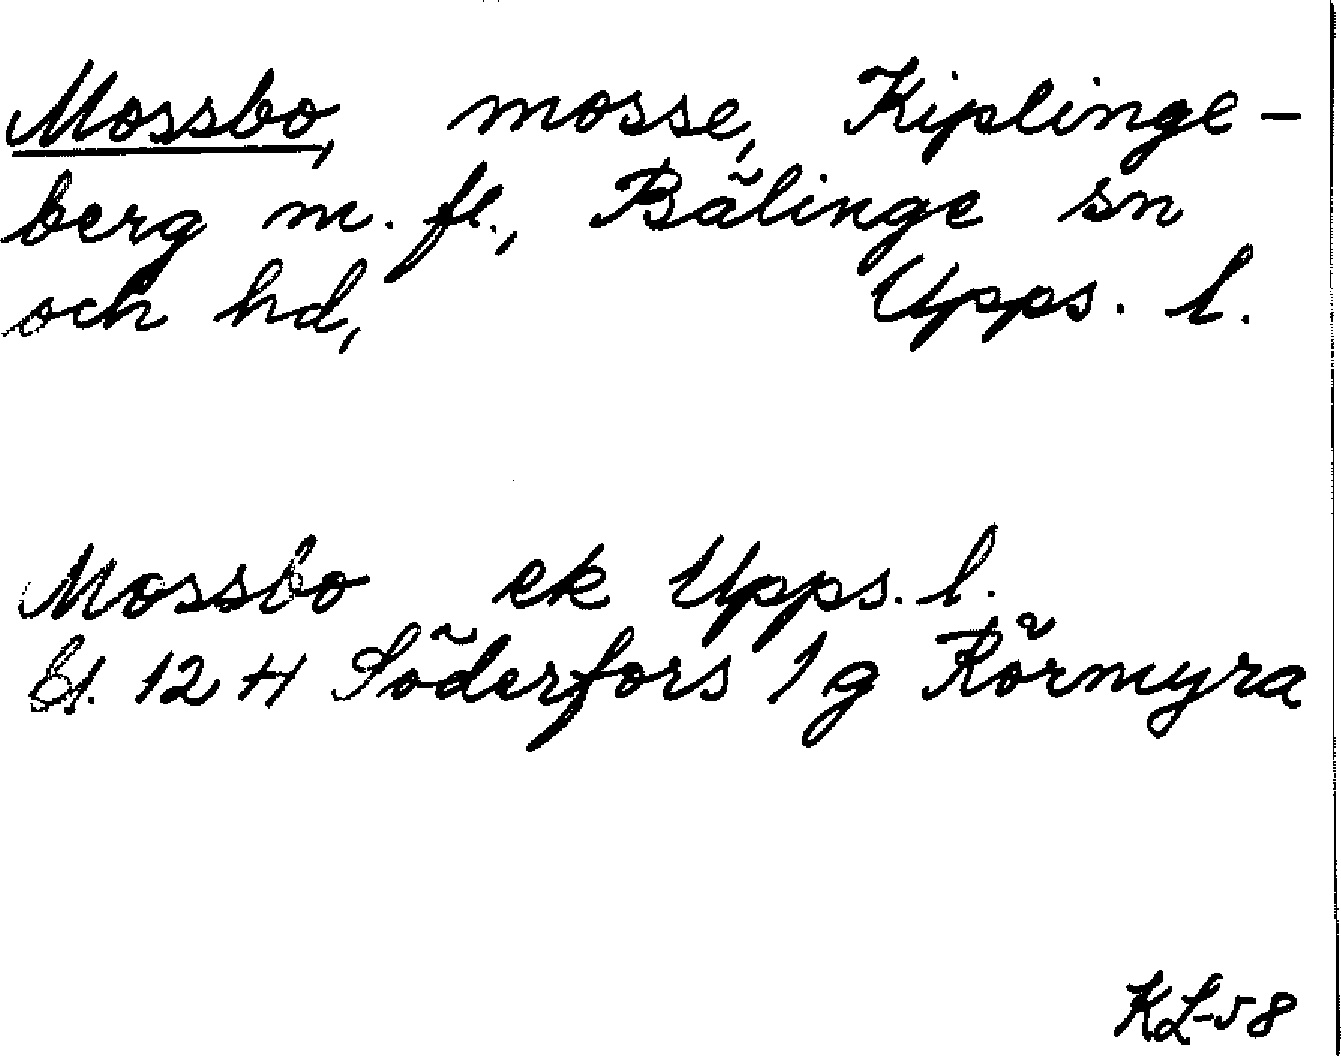 Mossbo, mosse, Kiplinge-
berg m. fl., Bälinge sn
och hd, Upps. l.
Mossbo ek Upps. l.
bl. 12 H Söderfors 1 g Rörmyra
KL-58